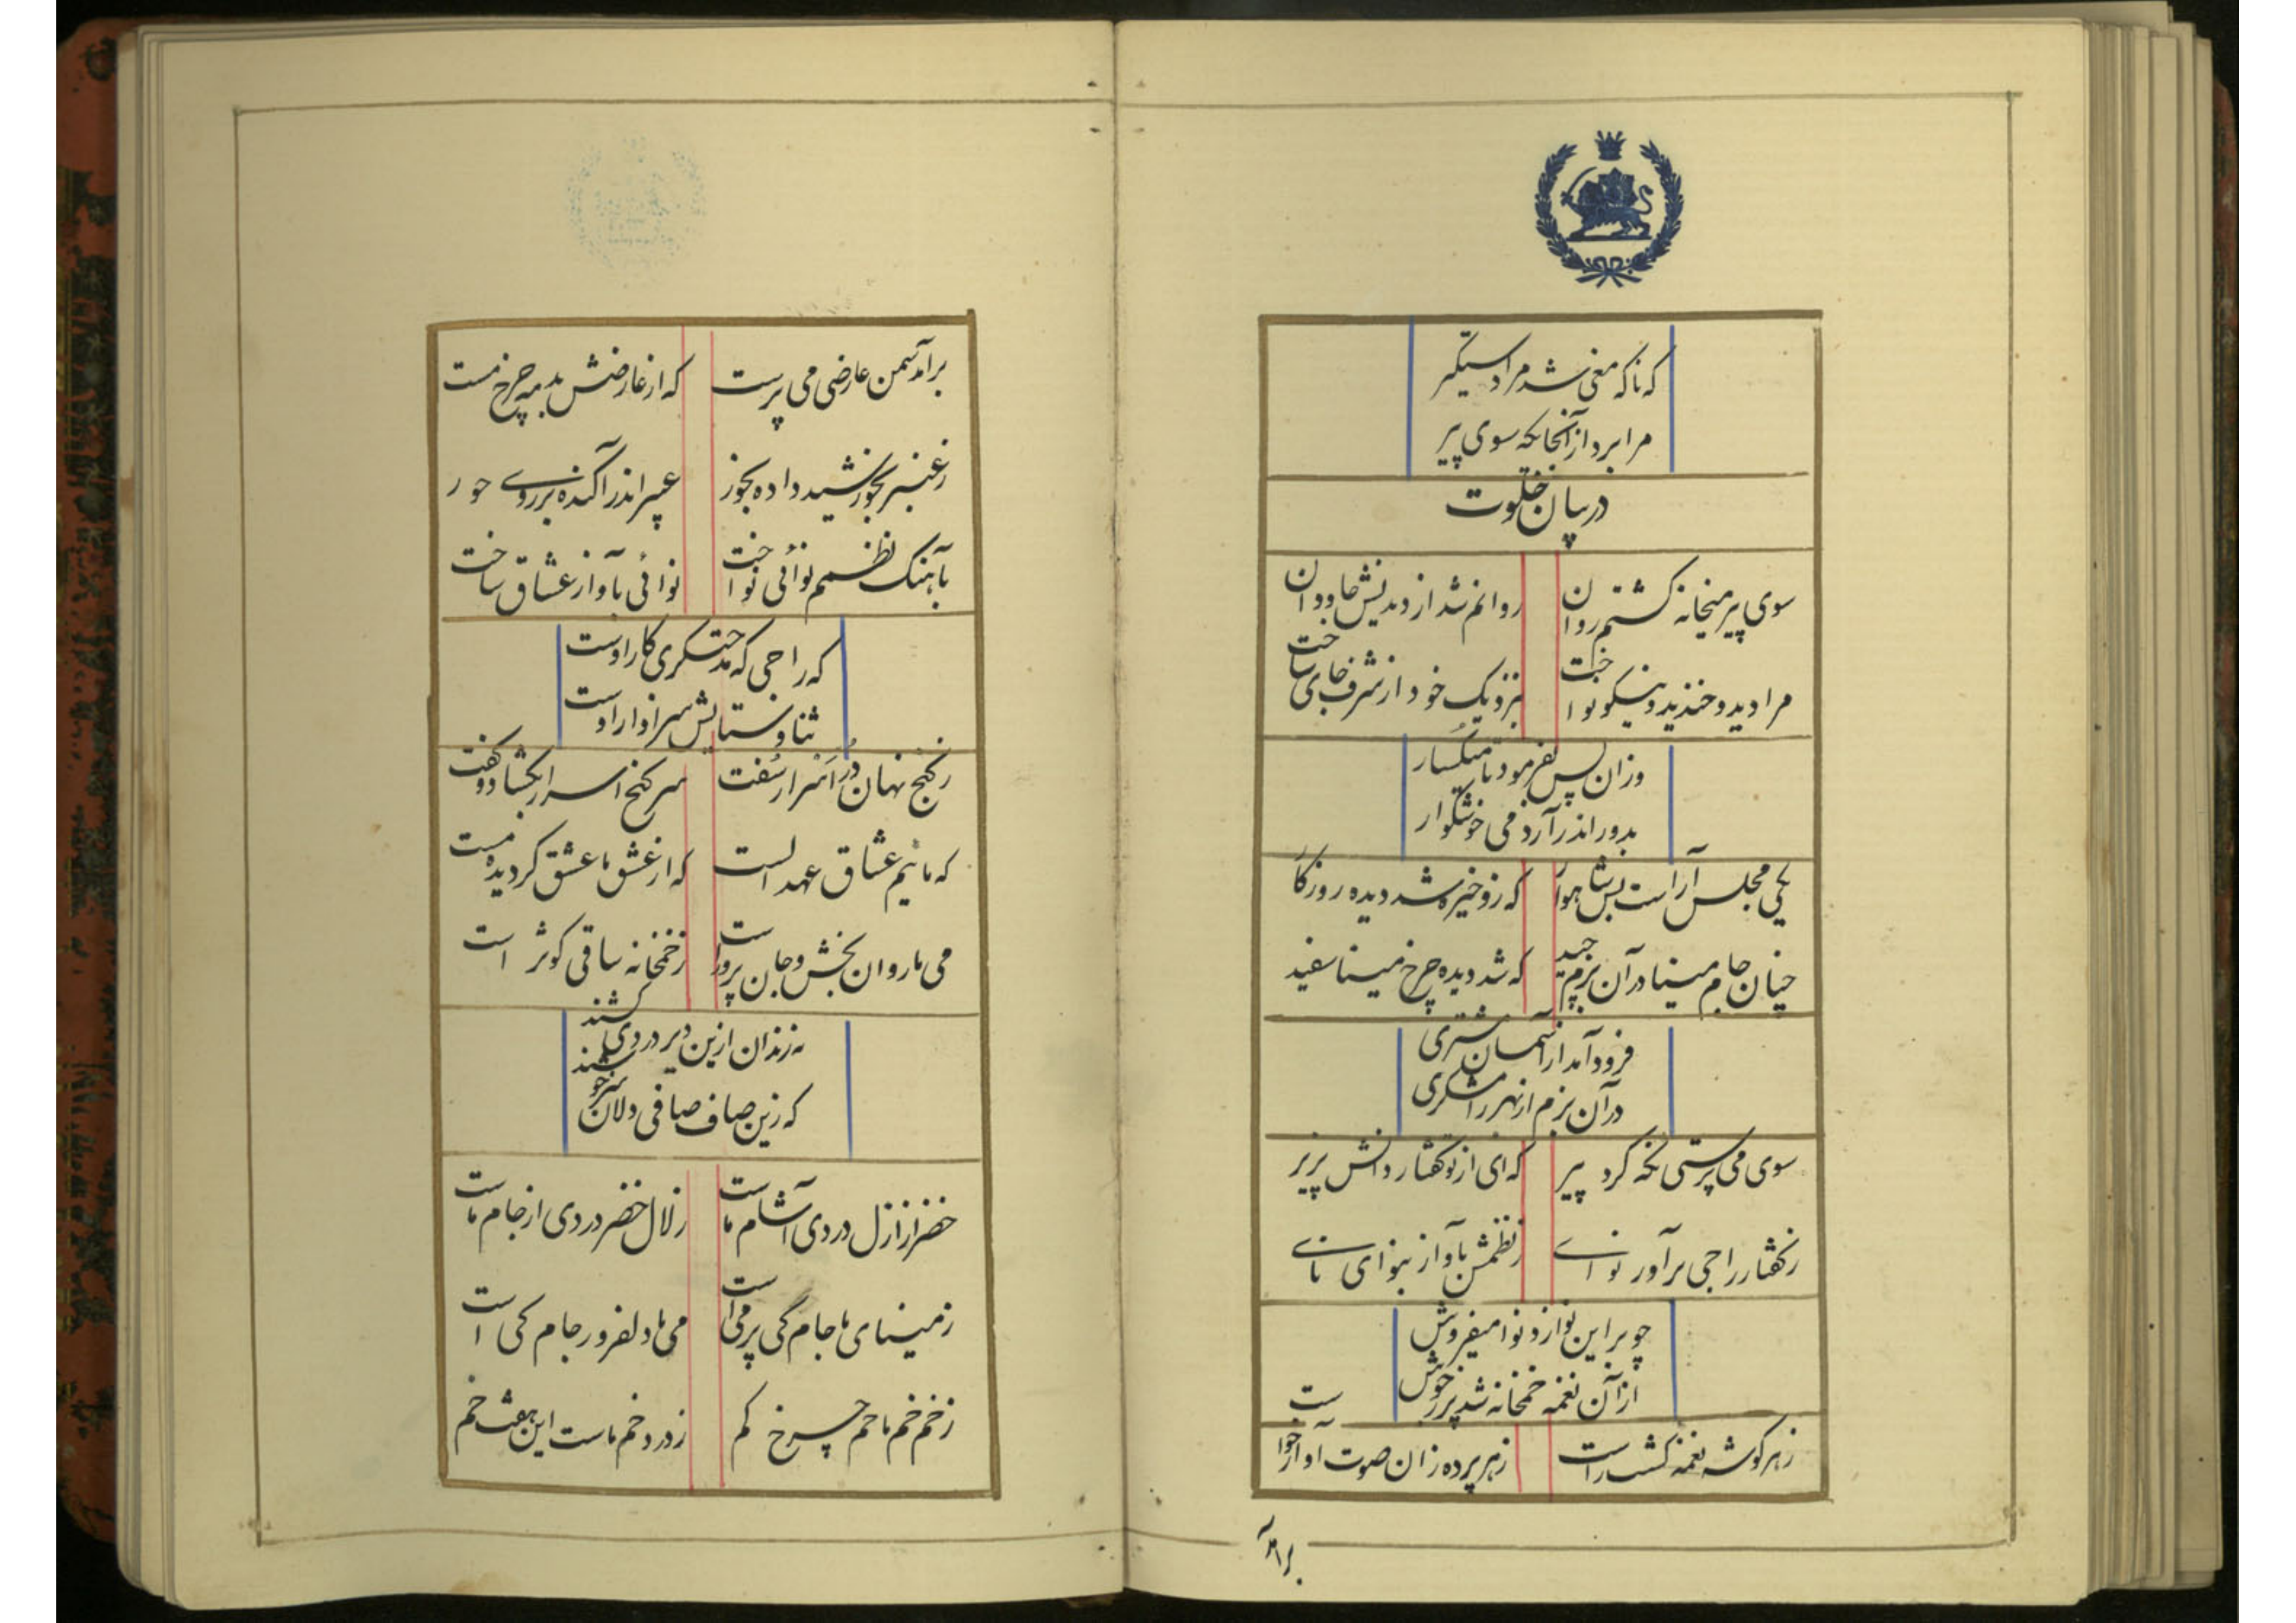 که ناگه مغی شد مرا دستگیر
مرا برد از آنجایکه سوی پیر
در بیان خلوت
سوی پیر میخانه گشتم روان
روانم شد از دیدنش جاودان
مرا دید و خندید و نیکو نواخت
بنزدیک خود از شرف جای ساخت
وزان پس بفرمود تا میگسار
بدور اندر آرد می خوشگوار
یکی مجلس آراست بس شاهوار
که زو خیره شد دیده روزگار
چنان جام مینا در آن بزم چید
که شد دیده چرخ مینا سفید
فرود آمد از آسمان مشتری
در آن بزم از بهر رامشگری
سوی می پرستی نگه کرد پیر
که ای از تو گفتار دانش پزیر
ز گفتار راجی برآور نوای
ز نظمش بآواز بنوای نای
چو بر این نوا زد نوا میفروش
از آن نغمه خمخانه شد پر خروش
ز هر گوشه نغمه گشت راست
ز هر پرده زان صوت آواز خواست
برآمد
برآمد سمن عارضی می پرست
که از عارضش بد مه چرخ مست
ز عنبر بخورشید داده بخور
عبیر اندر آکنده بر روی حور
بآهنگ نظمم نوائی نواخت
نوائی بآواز عشاق ساخت
که راجی که مدحتگری کار اوست
ثنا و ستایش سزاوار اوست
ز گنج نهان دُر اسرار سُفت
سر گنج اسرار بگشاد و گفت
که مائیم عشاق عهد الست
که از عشق ما عشق گردیده مست
می ما روان بخش و جان پرور است
ز خمخانه ساقی کوثر است
نه رندان ازین دیر دردی کشند
که زین صاف صافی دلان سرخوشند
خضر از ازل دردی آشام ماست
زلال خضر دردی از جام ماست
ز مینای ما جام کی پر می است
می ما دلفروز جام کی است
ز خم خم ما خم چرخ کم
ز درد خم ماست این هفت خم